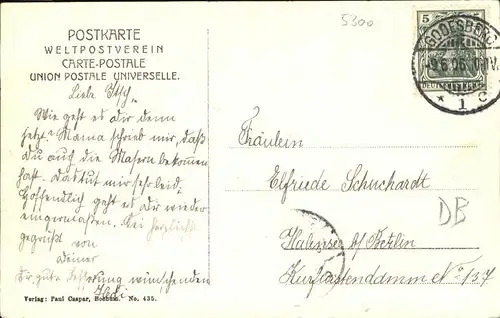 5300
POSTKARTE
WELTPOSTVEREIN
CARTE-POSTALE
UNION POSTALE UNIVERSELLE.
5
GODESBERG
9.6.06. V.
* 1 c
DEUTSCHES REICH
Liebe
Wie geht es dir denn
jetzt? Mama schrieb mir, daß
du auch die Masern bekommen
hast. Das tut mir sehr leid.
Hoffentlich geht es dir wieder
einigermaßen. Sei herzlichst
gegrüßt von
deiner
dir gute Besserung wünschenden
Fräulein
Elfriede Schuchardt
Halensee b/ Berlin
Kurfürstendamm No 137
DB
Verlag: Paul Caspar, Bochum. No. 435.